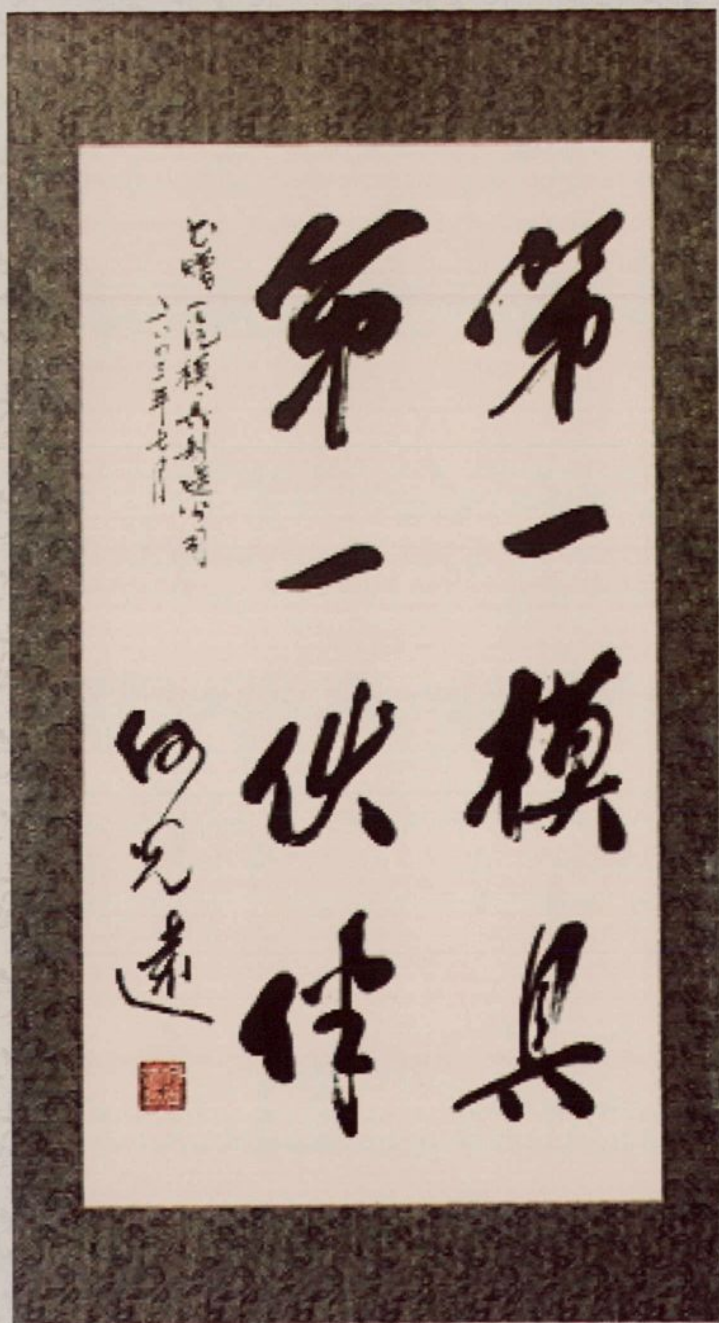 第一模具
第一伙伴
书赠一汽模具制造公司
二〇〇三年七月
何光远